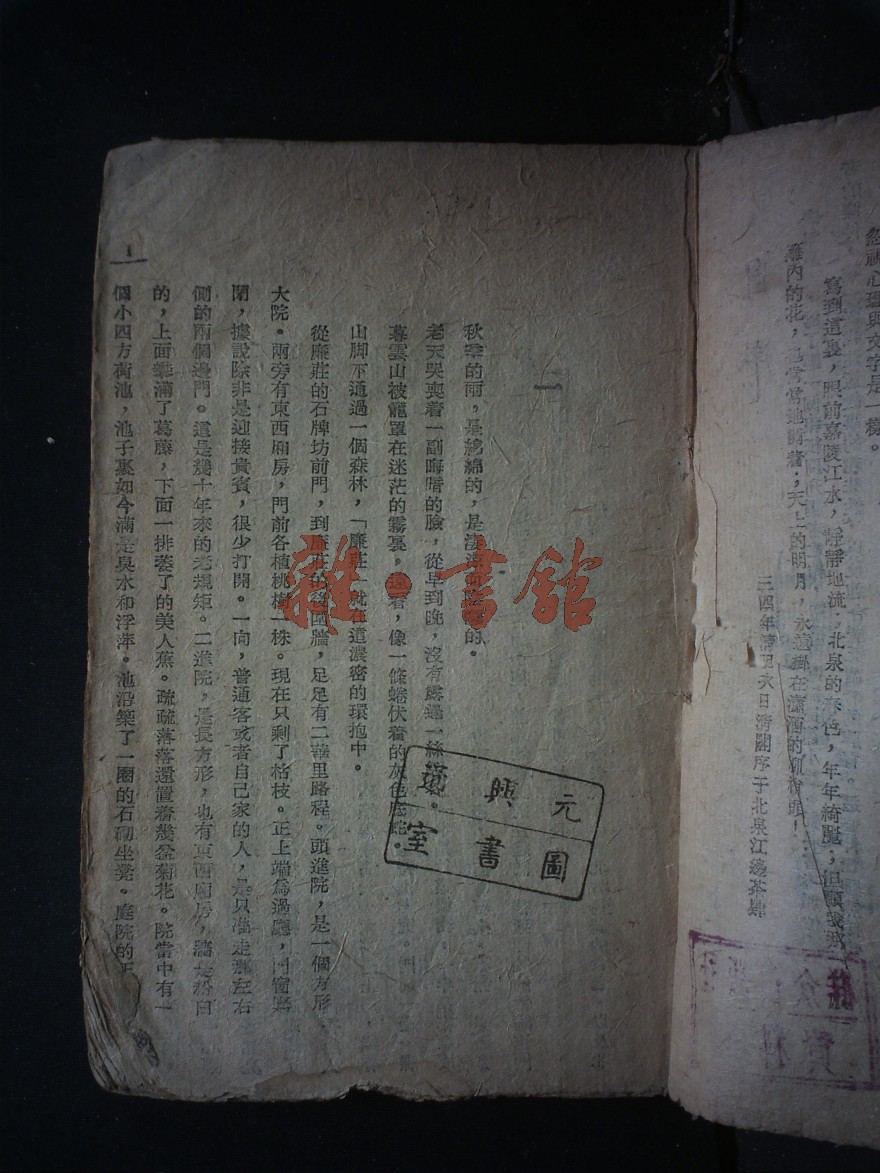 經神心理與文字是一樣。
寫到這裏，眼前嘉陵江水，靜靜地流，北泉的春色，年年綺麗；但願我那
雕內的花，也常常地開着；天上的明月，永遠掛在瀟洒的柳梢頭！
三四年清
日清閣序于北泉江邊茶肆
一
秋季的雨，是綿綿的，是淒涼而陰
的。
老天哭喪着一副晦暗的臉，從早到晚，沒有
過一絲
暮雲山被籠罩在迷茫的霧裏，遠看，像一條蜷伏着的灰色
蛇。
山脚下通過一個森林，「廉莊」就在這濃密的環抱中。
從廉莊的石牌坊前門，到廉莊的後圍牆，足足有二華里路程。頭進院，是一個方形
大院。兩旁有東西廂房，門前各植桃樹一株。現在只剩了枯枝。正上端為過廳，門窗
閉，據說除非是迎接貴賓，很少打開。一向，普通客或者自己家的人，是只准走那左右
側的兩個邊門。這是幾十年來的老規矩。二進院，是長方形，也有東西廂房，牆是粉白
的，上面
滿了葛藤，下面一排萎了的美人蕉。疏疏落落還置着幾盆菊花。院當中有一
個小四方荷池，池子裏如今滿是臭水和浮萍。池沿築了一圈的石砌坐凳。庭院的正
1
雜·書館
元興
圖書室